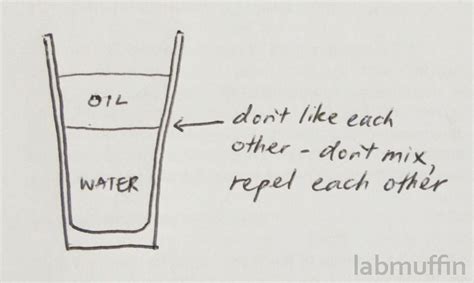 OIL
WATER
don't like each
other - don't mix,
repel each other
labmuffin